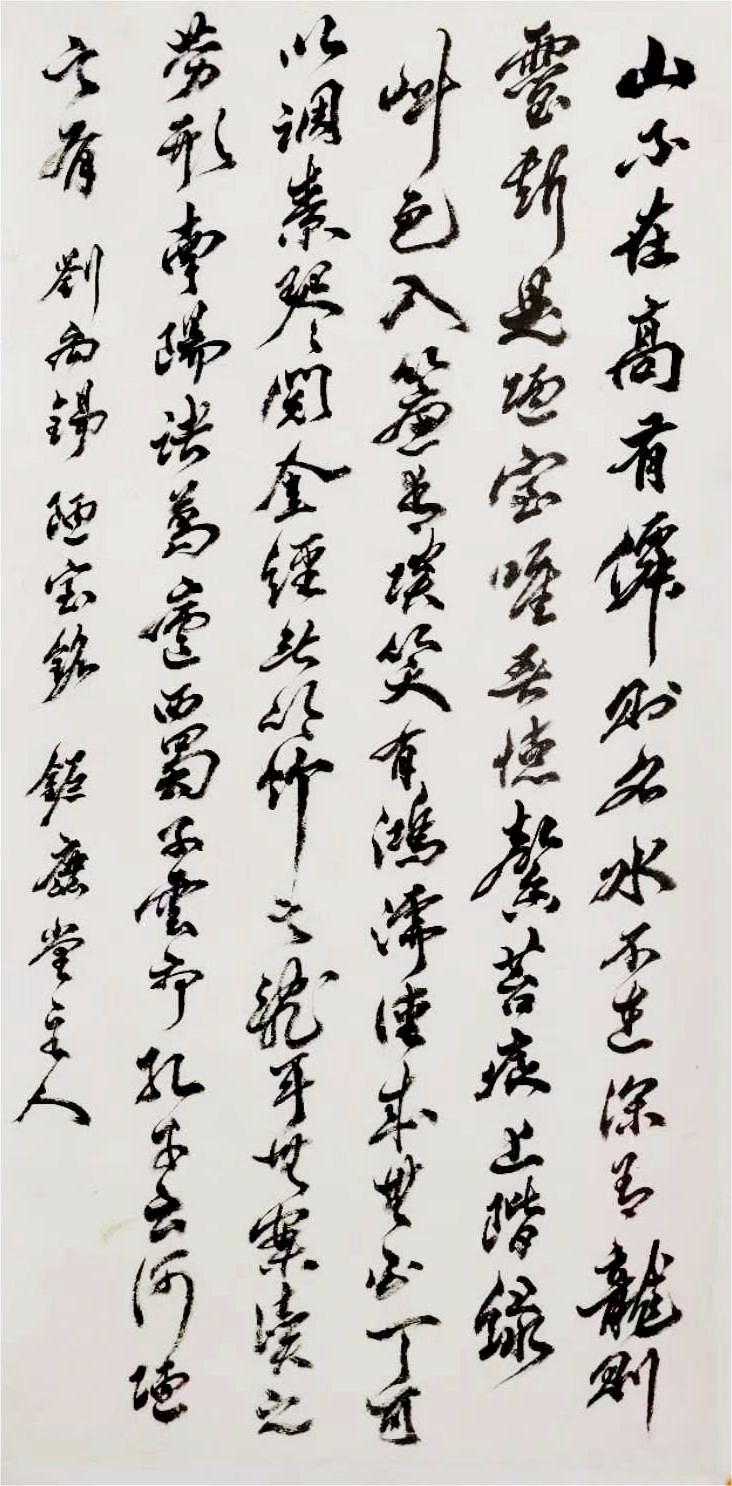 山不在高有僊則名水不在深有龍則
靈斯是陋室唯吾德馨苔痕上階綠
艸色入簾青談笑有鴻儒往來無白丁可
以調素琴閱金經無絲竹之亂耳無案牘之
勞形南陽諸葛廬西蜀子雲亭孔子云何陋
之有 劉禹錫 陋室銘 鉅鹿堂主人